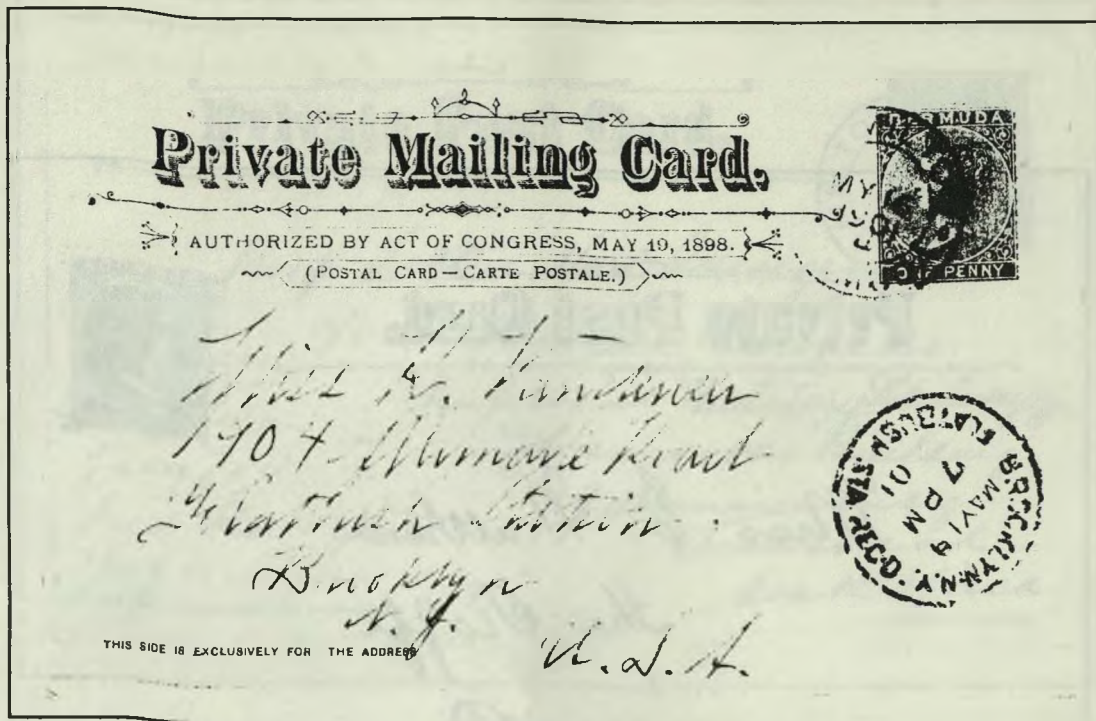 Private Mailing Card.
BERMUDA
MY
AUTHORIZED BY ACT OF CONGRESS, MAY 19, 1898.
(POSTAL CARD—CARTE POSTALE.)
ONE PENNY
Miss K.
1404 Road
Flatbush Station
Brooklyn
N.Y.
U.S.A.
BROOKLYN.N.Y.
FLATBUSH STA. REC'D.
MAY 19
7 PM
01
THIS SIDE IS EXCLUSIVELY FOR THE ADDRESS